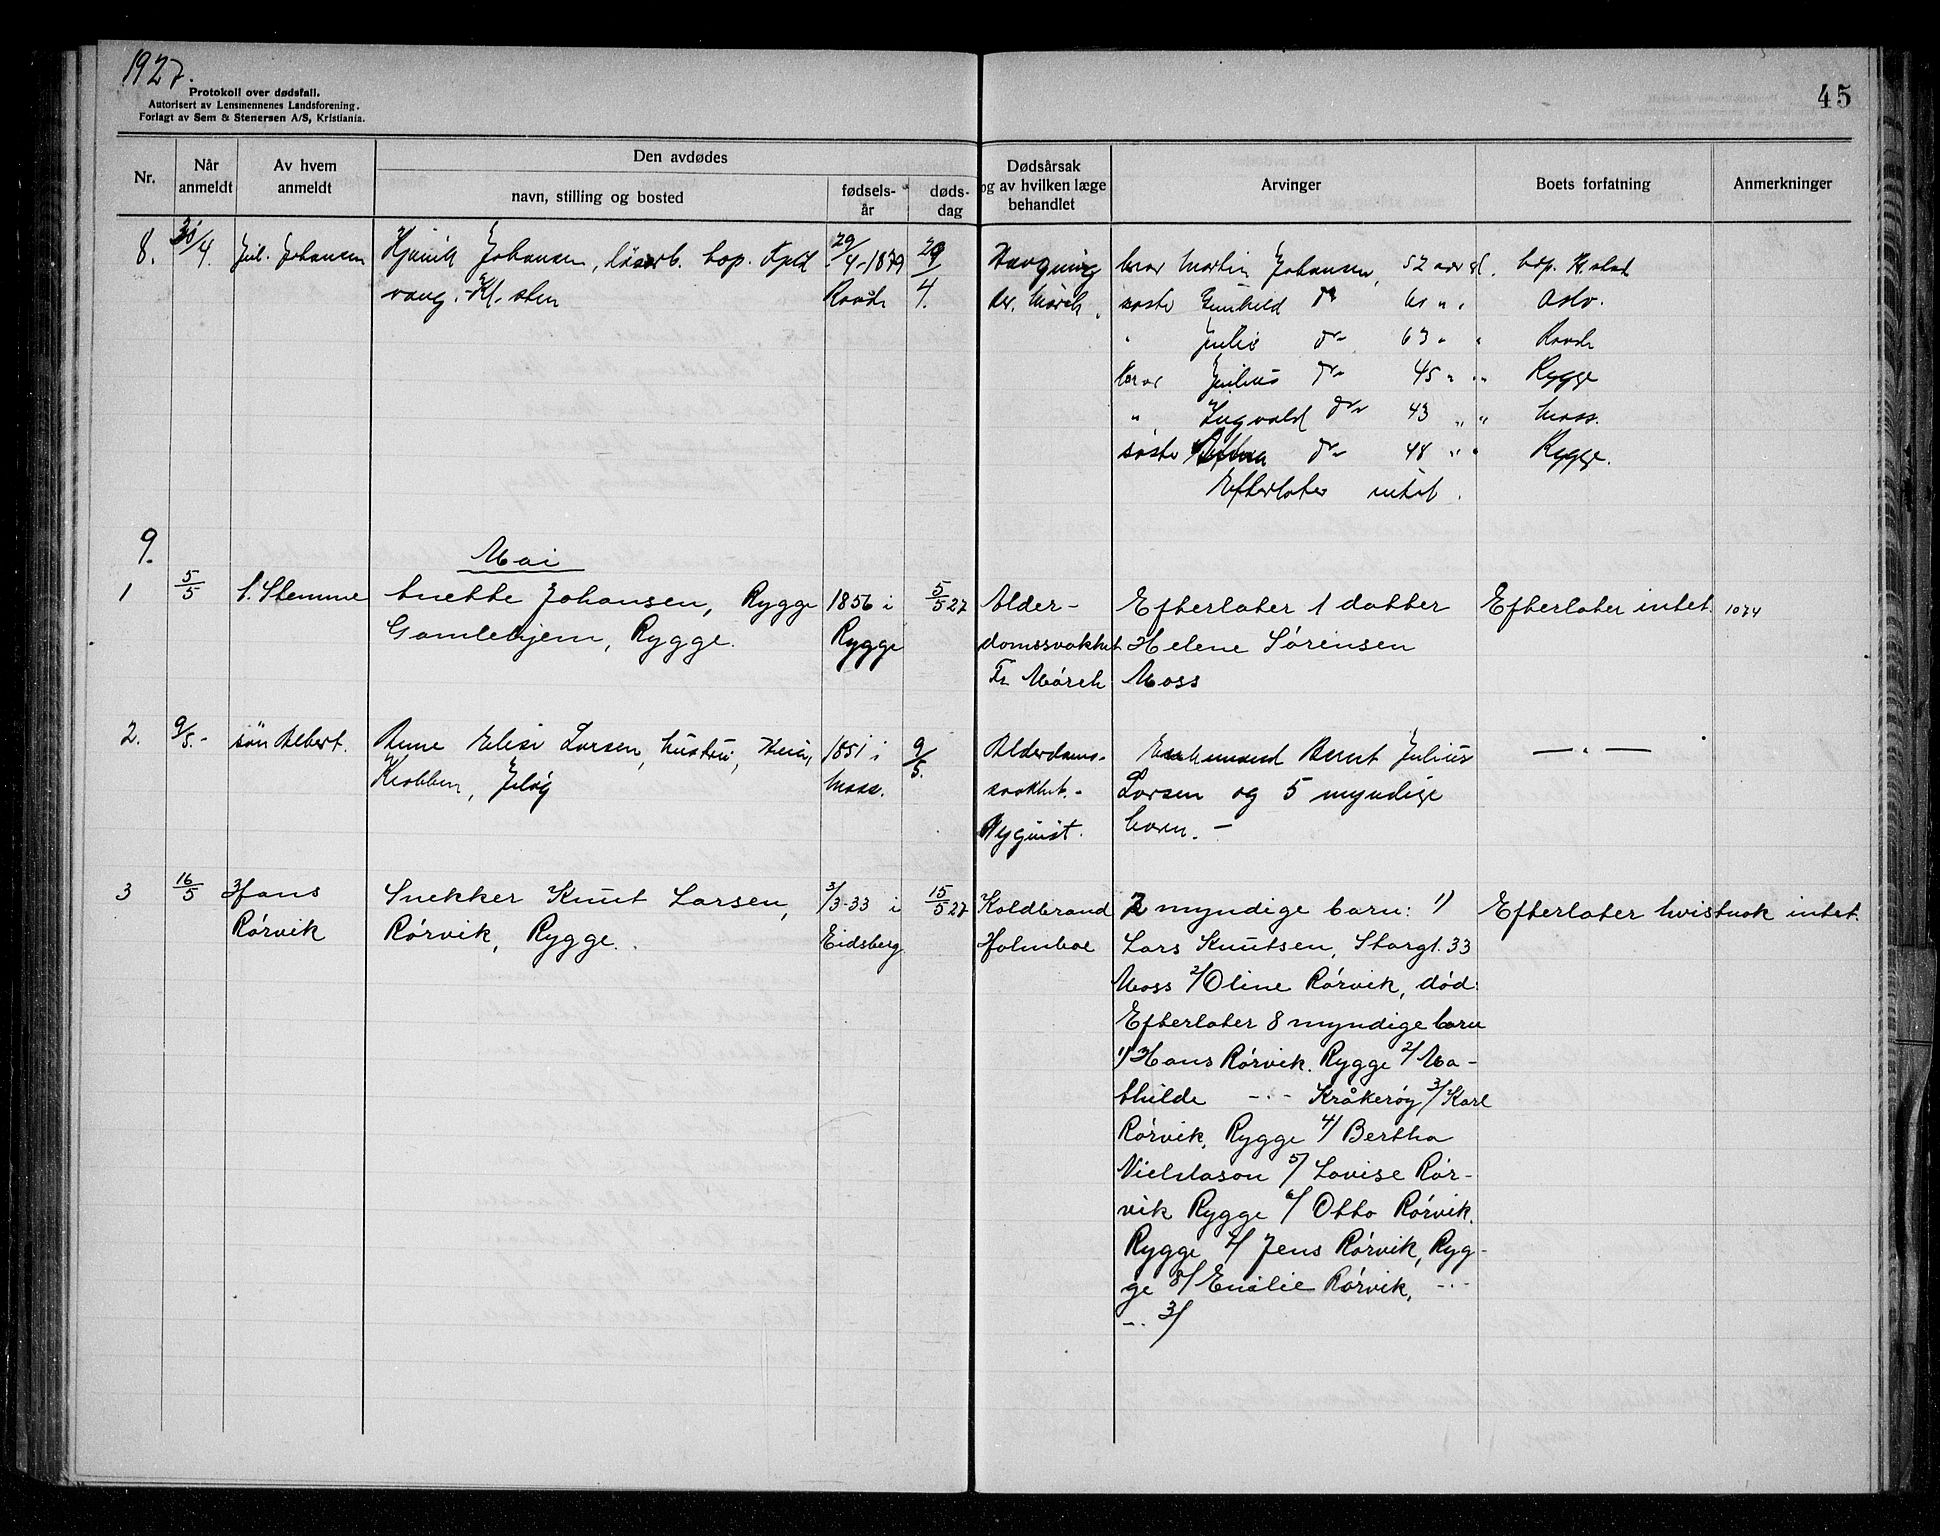 1927.
Protokoll over dødsfall.
Autorisert av Lensmennenes Landsforening.
Forlagt av Sem & Stenersen A/S, Kristiania.
45
Nr.
Når anmeldt
Av hvem anmeldt
Den avdødes
navn, stilling og bosted
fødselsår
dødsdag
Dødsårsak og av hvilken læge behandlet
Arvinger
Boets forfatning
Anmerkninger
8. 30/4. Jul. Johansen Johansen, bop. 29/4-1879 29/4. bror Martin Johansen, 52 aar bop.
vang. Raade Dr. Mørch. søster Gunhild 61 " . Oslo.
" Julie 63 " " Raade
bror Julius 45 " " Rygge
" Ingvald 43 " " Moss.
søster 48 " " Rygge.
Efterlater intet.
9.
Mai
1 5/5 Stemme Anette Johansen, Rygge 1856 i 5/5 27 Alder- Efterlater 1 datter Efterlater intet. 1074
Gamlehjem, Rygge. Rygge domssvakhet Helene Sørensen
Fr. Mørch Moss
2. 9/5.- søn Albert. Anne Elise Larsen, hustru, 1851 i 9/5. Alderdoms- Bernt Julius — " —
Krabben, Jeløy Moss. svakhet.- Larsen og 5 myndige
Nyquist. barn. -
3 16/5 Hans Snekker Knut Larsen, 3/3-33 i 15/5 27 Koldbrand 2 myndige barn: 1) Efterlater hvistnok intet.
Rørvik Rørvik, Rygge. Eidsberg Holmboe Lars Knutsen, Storgt. 33
Moss 2/ Oline Rørvik, død.
Efterlater 8 myndige barn
1) Hans Rørvik. Rygge 2/ Ma-
thilde -"- Kråkerøy 3/ Karl
Rørvik, Rygge 4/ Bertha
5/ Lovise Rør-
vik Rygge 6/ Otto Rørvik.
Rygge 7/ Jens Rørvik, Ryg-
ge 8/ Emilie Rørvik, -"-
-. 3/